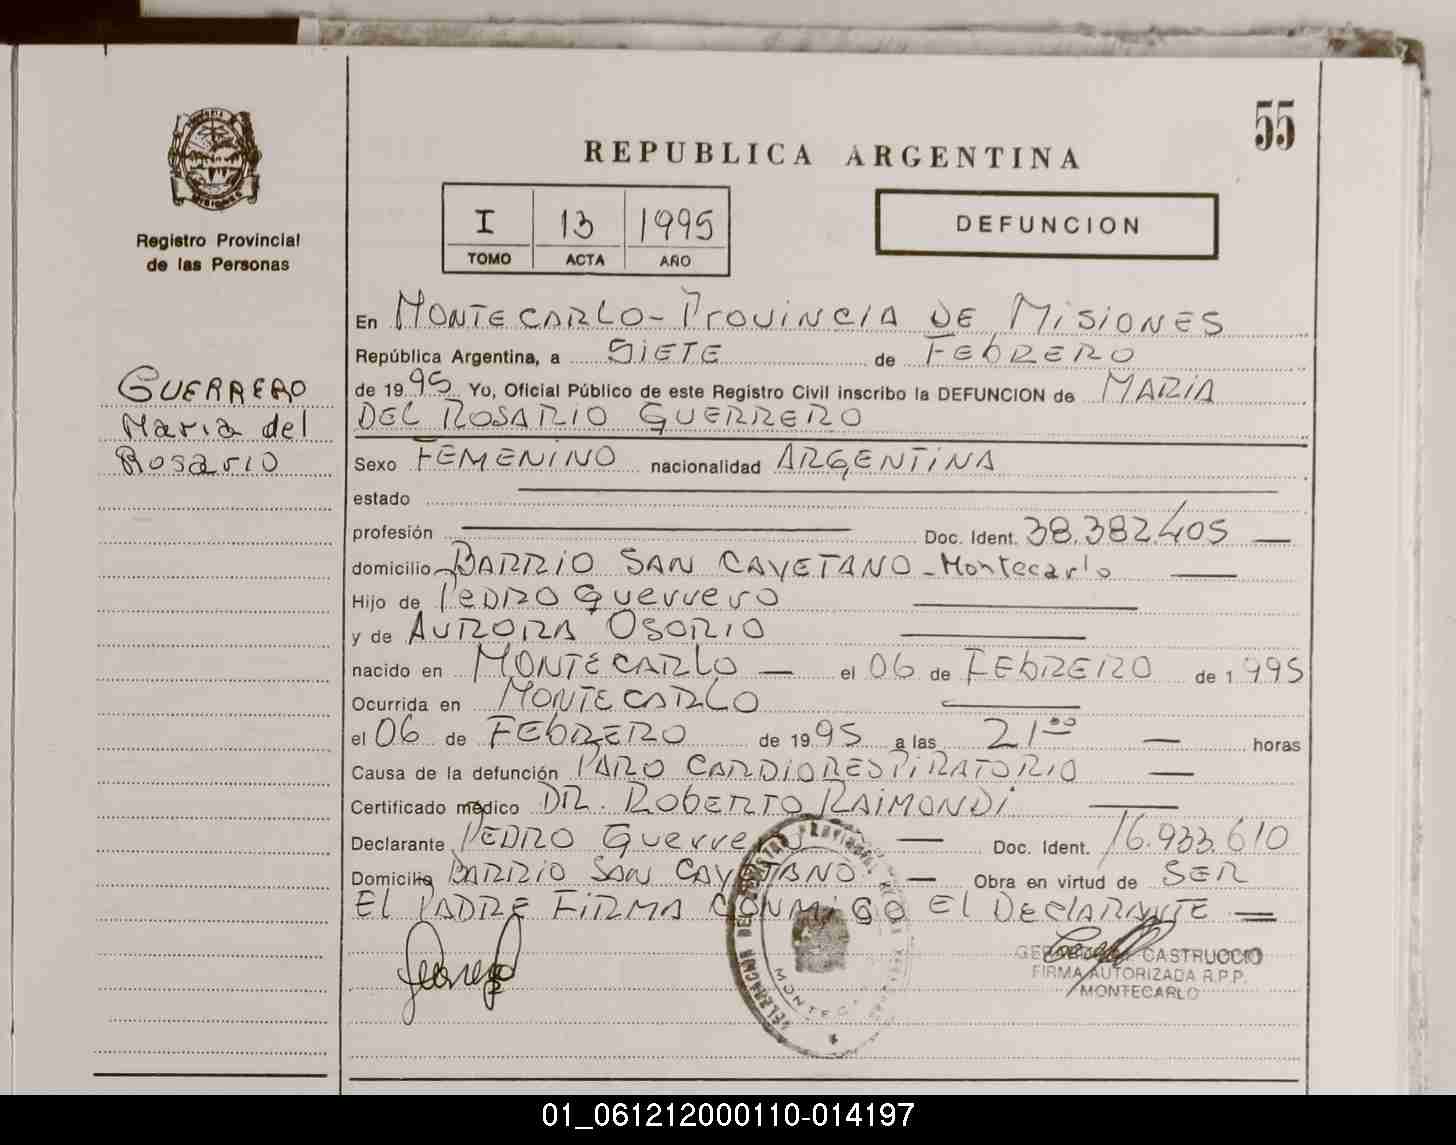 55
REPUBLICA ARGENTINA
I 13 1995
TOMO ACTA AÑO
DEFUNCION
MISIONES
Registro Provincial
de las Personas
GUERRERO
Maria del
Rosario
En MONTECARLO - PROVINCIA DE MISIONES
República Argentina, a SIETE de FEBRERO
de 1995 Yo, Oficial Público de este Registro Civil inscribo la DEFUNCION de MARIA
DEL ROSARIO GUERRERO
Sexo FEMENINO nacionalidad ARGENTINA
estado
profesión Doc. Ident. 38.382.405 —
domicilio BARRIO SAN CAYETANO - Montecarlo —
Hijo de PEDRO Guerrero —
y de AURORA OSORIO —
nacido en MONTECARLO — el 06 de FEBRERO de 1995
Ocurrida en MONTECARLO —
el 06 de FEBRERO de 1995 a las 21 00 — horas
Causa de la defunción PARO CARDIORESPIRATORIO —
Certificado médico DR. ROBERTO RAIMONDI —
Declarante PEDRO Guerrero — Doc. Ident. 16.933.610
Domicilio BARRIO SAN CAYETANO — Obra en virtud de SER
EL PADRE FIRMA CONMIGO EL DECLARANTE —
CASTRUCCIO
FIRMA AUTORIZADA R.P.P.
MONTECARLO
01_061212000110-014197